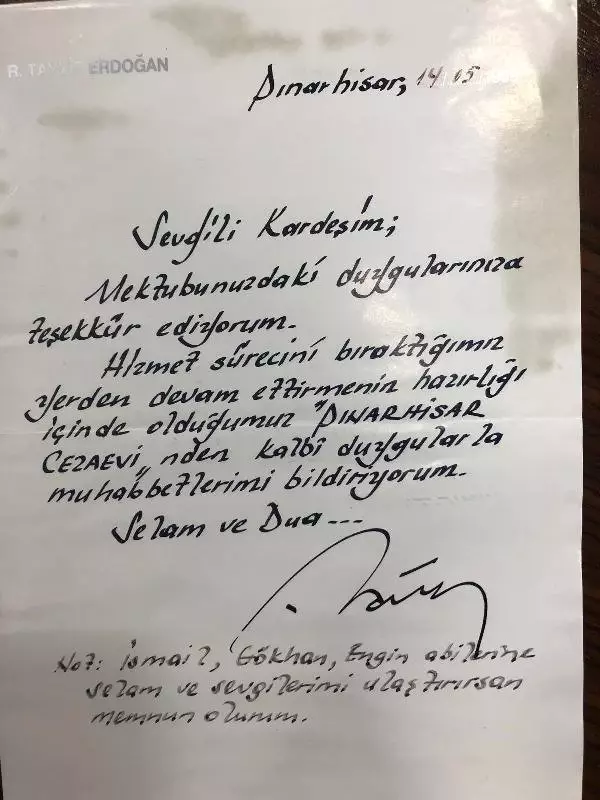 R. TAYYİP ERDOĞAN
Pınarhisar, 14.05
Sevgili Kardeşim;
Mektubunuzdaki duygularınıza
teşekkür ediyorum.
Hizmet sürecini bıraktığımız
yerden devam ettirmenin hazırlığı
içinde olduğumuz "PINARHİSAR
CEZAEVİ„nden kalbî duygularla
muhabbetlerimi bildiriyorum.
Selam ve Dua---
Not: İsmail, Gökhan, Engin abilerine
selam ve sevgilerimi ulaştırırsan
memnun olurum.